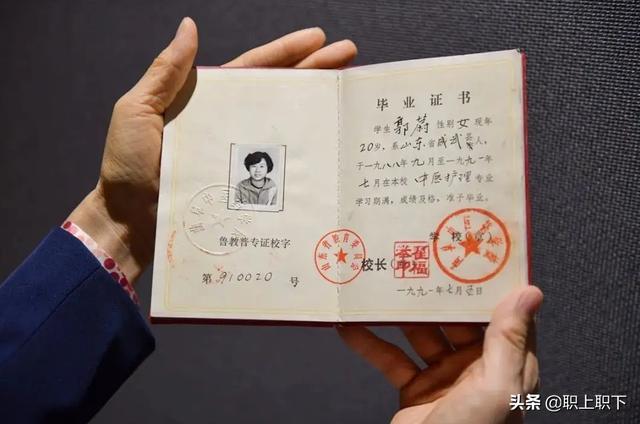 鲁教普专证校字
第910020号
山东省教育委员会
毕业证书
学生郭蔚性别女现年
20岁,系山东省成武县人,
于一九八八年九月至一九九一年
七月在本校中医护理专业
学习期满,成绩及格,准予毕业。
学校(章)
校长
一九九一年七月
头条 @职上职下